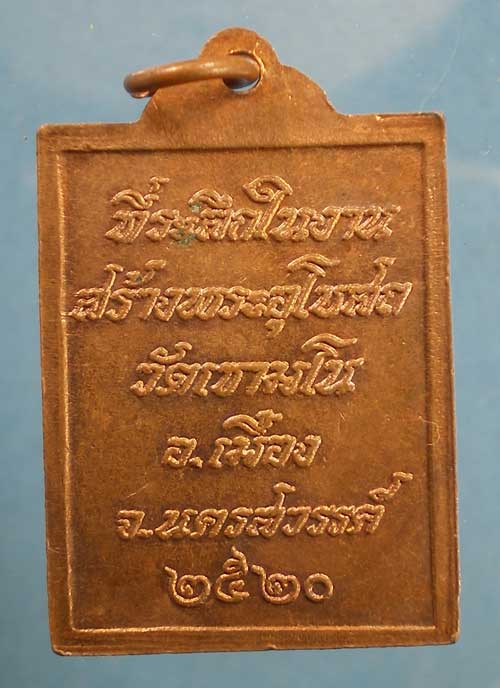 ที่ระลึกในงาน
สร้างพระอุโบสถ
วัดเขามโน
อ.เมือง
จ.นครสวรรค์
๒๕๒๐